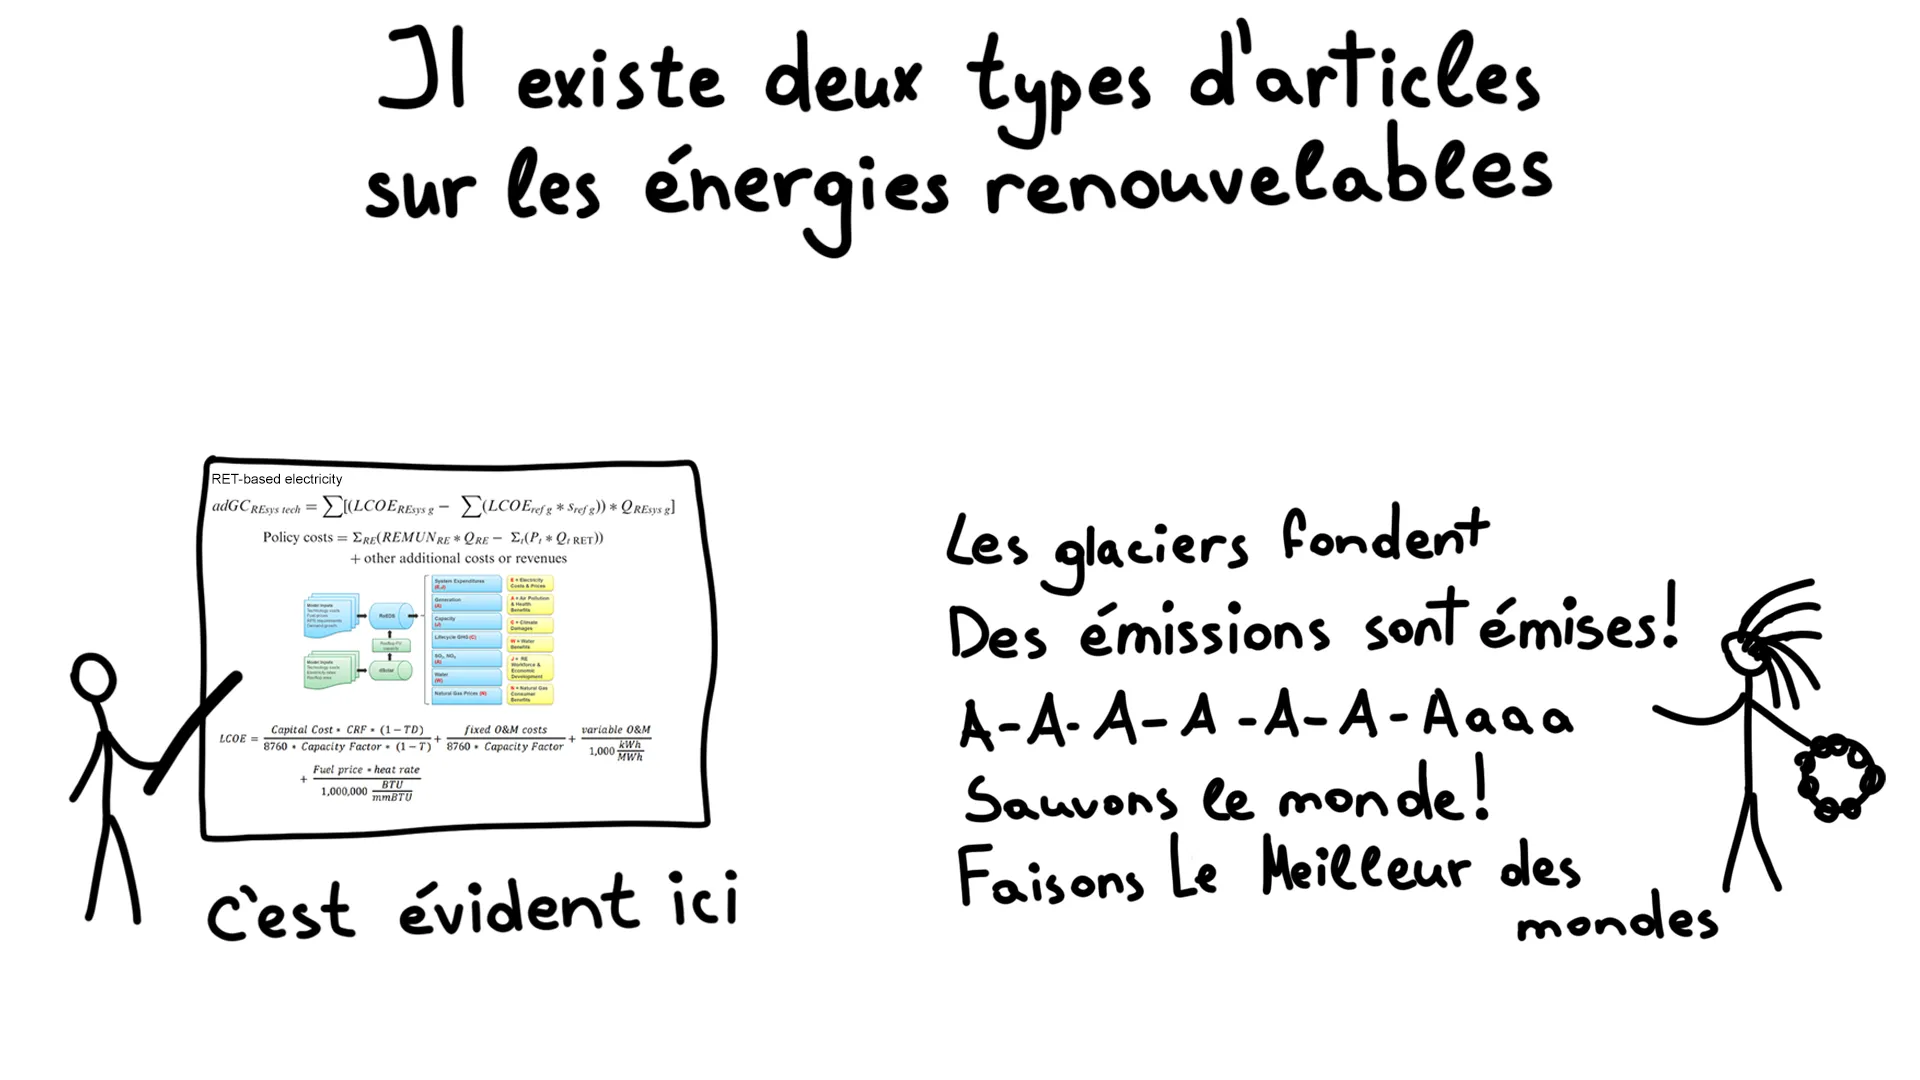 Il existe deux types d'articles
sur les énergies renouvelables
RET-based electricity
adGC_REsys tech = ∑[(LCOE_REsys g − ∑(LCOE_ref g * s_ref g)) * Q_REsys g]
Policy costs = Σ_RE(REMUN_RE * Q_RE − Σ_t(P_t * Q_t RET))
+ other additional costs or revenues
Model Inputs
ReEDS
Rooftop PV
capacity
Model Inputs
dSolar
System Expenditures
(E,J)
Generation
(A)
Capacity
(J)
Lifecycle GHG (C)
SO₂, NOₓ
(A)
Water
(W)
Natural Gas Prices (N)
E = Electricity
Costs & Prices
A = Air Pollution
& Health
Benefits
C = Climate
Damages
W = Water
Benefits
J = RE
Workforce &
Economic
Development
N = Natural Gas
Consumer
Benefits
LCOE = Capital Cost * CRF * (1 − TD) / 8760 * Capacity Factor * (1 − T) + fixed O&M costs / 8760 * Capacity Factor + variable O&M / 1,000 kWh/MWh
+ Fuel price * heat rate / 1,000,000 BTU/mmBTU
c'est évident ici
Les glaciers fondent
Des émissions sont émises!
A-A-A-A-A-A-Aaaa
Sauvons le monde!
Faisons Le Meilleur des
mondes